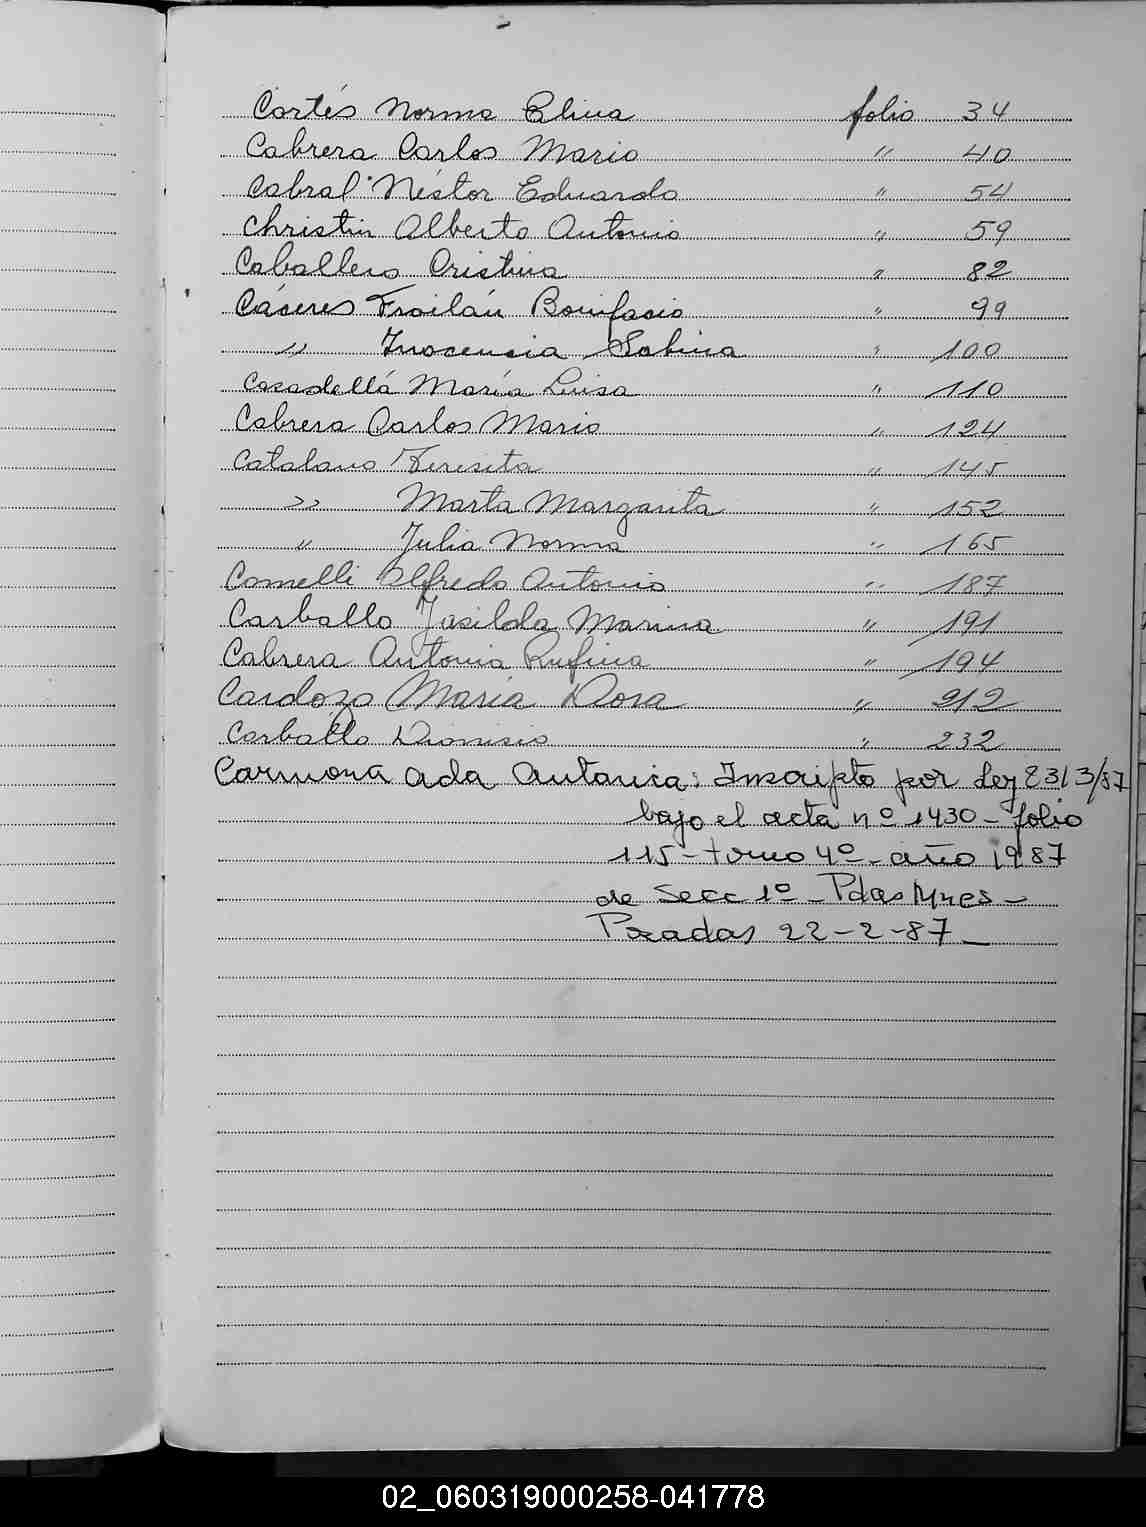 Cortés Norma Elina folio 34
Cabrera Carlos Mario " 40
Cabral Néstor Eduardo " 54
Christin Alberto Antonio " 59
Caballero Cristina " 82
Cáceres Froilán Bonifacio " 99
" Inocencia Sabina " 100
Casadellá María Luisa " 110
Cabrera Carlos Mario " 124
Catalano Teresita " 145
" Marta Margarita " 152
" Julia Norma " 165
Comelli Alfredo Antonio " 187
Carballo Marina " 191
Cabrera Antonia Rufina " 194
Cardozo María Dora " 212
Carballo Dionisio " 232
Carmona Ada Antonia: Inscripto por Ley
bajo el acta nº 1430 - folio
115 - tomo 4º - año 1987
de Secc 1º - Pdas Mnes -
Posadas 22 - 2 - 87 _
02_060319000258-041778